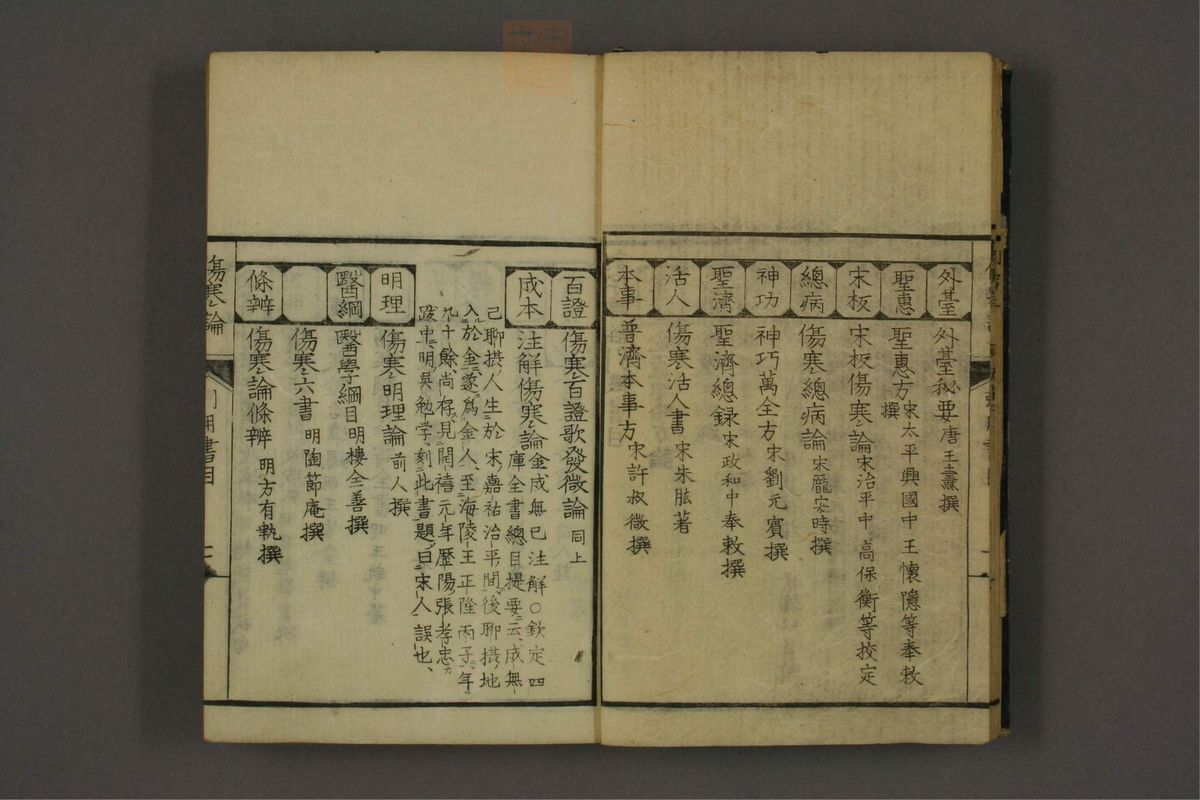 外臺 外臺秘要唐王燾撰
聖惠 聖惠方宋太平興國中王懷隱等奉敕撰
宋板 宋板傷寒論宋治平中高保衡等挍定
總病 傷寒總病論宋龐安時撰
神功 神巧萬全方宋劉元賓撰
聖濟 聖濟總録宋政和中奉敕撰
活人 傷寒活人書宋朱肱著
本事 普濟本事方宋許叔微撰
百證 傷寒百證歌發微論同上
成本 注解傷寒論金成無已注解○欽定四
庫全書總目提要云、成無
己聊攝人生於宋嘉祐治平間、後聊攝地
入於金、遂爲金人、至海陵王正隆丙子、年
九十餘尚存、見開禧元年歷陽張孝忠
跋中、明吳勉学刻此書題曰宋人誤也、
明理 傷寒明理論前人撰
醫綱 醫學綱目明樓全善撰
傷寒六書明陶節庵撰
條辨 傷寒論條辨明方有執撰
傷寒論 引用書目